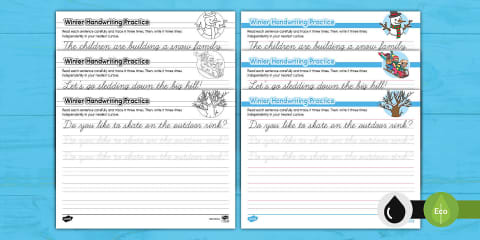 Winter Handwriting Practice
Read each sentence carefully and trace it three times. Then, write it three times
independently in your neatest cursive.
The children are building a snow family.
Winter Handwriting Practice
Read each sentence carefully and trace it three times. Then, write it three times
independently in your neatest cursive.
Let's go sledding down the big hill!
Winter Handwriting Practice
Read each sentence carefully and trace it three times. Then, write it three times
independently in your neatest cursive.
Do you like to skate on the outdoor rink?
Do you like to skate on the outdoor rink?
Do you like to skate on the outdoor rink?
Winter Handwriting Practice
Read each sentence carefully and trace it three times. Then, write it three times
independently in your neatest cursive.
The children are building a snow family.
Winter Handwriting Practice
Read each sentence carefully and trace it three times. Then, write it three times
independently in your neatest cursive.
Let's go sledding down the big hill!
Winter Handwriting Practice
Read each sentence carefully and trace it three times. Then, write it three times
independently in your neatest cursive.
Do you like to skate on the outdoor rink?
Do you like to skate on the outdoor rink?
Do you like to skate on the outdoor rink?
Eco